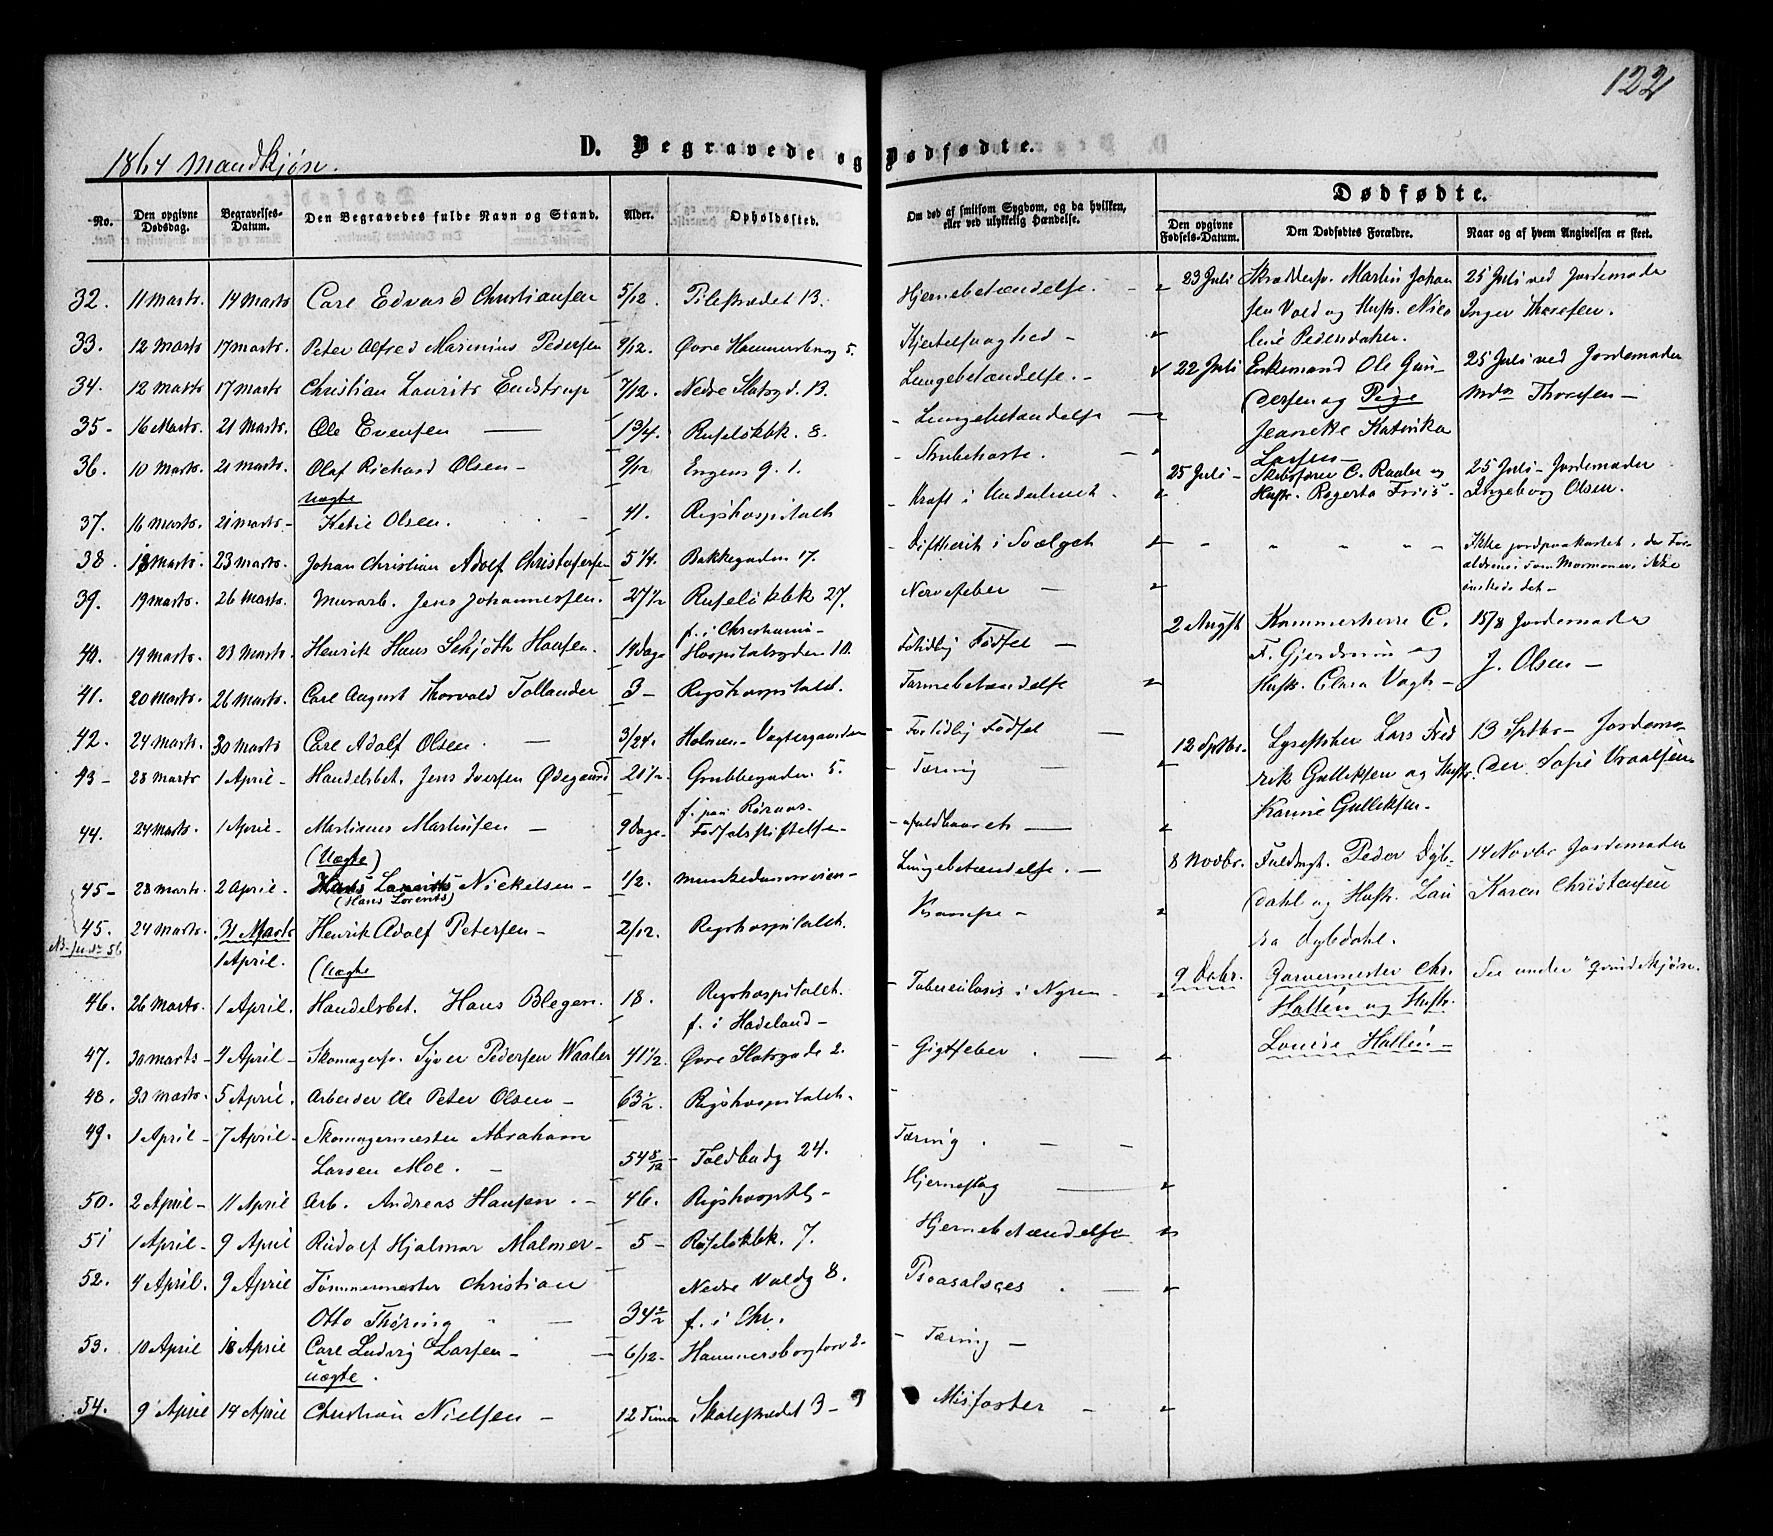 122
1864 Mandkjøn.
D. Begravede og Dødfødte.
No. | Den opgivne Dødsdag. | Begravelses-Datum. | Den Begravedes fulde Navn og Stand. | Alder. | Opholdssted. | Om død af smitsom Sygdom, og da hvilken, eller ved ulykkelig Hændelse.
32. | 11 Marts. | 14 Marts | Carl Edvard Christiansen | 5/12. | Pilestrædet 13. | Hjernebetændelse.
33. | 12 Marts | 17 Marts. | Peter Alfred Marinius Pedersen | 9/12. | Øvre Hammersborg 5. | Kjertelsvaghed -
34. | 12 Marts | 17 Marts | Christian Laurits Endstrup | 7/12. | Nedre Slotsgd. 13. | Lungebetændelse. -
35- | 16 Marts. | 21 Marts. | Ole Evensen — | 1 3/4. | Ruseløkbk. 8. | - Lungebetændelse
36. | 10 Marts. | 21 Marts. | Olaf Richard Olsen - | 9/12 | Engens g. 1. | - Strubehoste.
Uægte
37. | 16 Marts. | 21 Marts - | Olsen. | 41. | Rigshospitalet | - Kræft i Underlivet
38. | 18 Marts. | 23 Marts. | Johan Christian Adolf Christofersen | 5 1/4. | Bakkegaden 17. | - Diftherit i Svælget
39. | 19 Marts. | 26 Marts. | Murarb. Jens Johannessen. | 27 1/2 | Ruseløkbk 27. | Nervefeber —
f. i Christiania -
40. | 19 Marts. | 23 Marts. | Henrik Hans Schjøth Hansen. | 14 Dage | Hospitalsgaden 10. | Fortidlig Fødsel —
41. | 20 Marts. | 26 Marts. | Carl August Thorvald Tollander | 3 - | Rigshospitalet. | Tarmebetændelse
42. | 24 Marts. | 30 Marts | Carl Adolf Olsen. — | 3/24. | Holmen - Vegtergaarden | - Fortidlig Fødsel
43 - | 28 Marts | 1 April - | Handelsbet. Jens Iversen Ødegaard | 20 1/2 | Grubbegaden. 5. | - Tæring
f. paa Røraas-
44. | 24 Marts. | 1 April - | Martinus Martinsen — | 9 Dage - | Fødselsstiftelsen - | - ufuldbaaret —
(Uægte)
45- | 28 Marts. | 2 April. | Laurits Nickelsen - | 1/2. | Munkedamsveien - | Lungebetændelse. -
(Hans Lorents)
45. | 24 Marts. | 31 Marts | Henrik Adolf Petersen - | 2/12. | Rigshospitalet. | Krampe -
56
1 April.
(Uægte
46. | 26 Marts. | 1 April. | Handelsbet. Hans Blegen. | 18. | Rigshospitalet. | - Tuberculosis i Nyren
f. i Hadeland -
47. | 30 Marts - | 4 April - | Skomagersv. Syver Pedersen Waaler | 41 1/2. | Øvre Slotsgade 2. | - Gigtfeber
48. | 30 Marts. | 5 April. | Arbeider Ole Peter Olsen - | 63 1/2. | Rigshospitalet. | -
49. | 1 April - | 7 April - | Skomagermester Abraham | Tæring.
Larsen Moe. - | 54 8/12 - | Toldbodg 24.
50. | 2 April - | 11 April | Arb. Andreas Hansen - | 46. | Rigshospitl - | Hjerneslag
51 | 1 April - | 9 April | Rudolf Hjalmar Malmer - | 5 - | Ruseløkbk. 7. | Hjernebetændelse
52. | 4 April. | 9 April | Tømmermester Christian | Nedre Voldg 8. | Psoasabsces
Otto Thøring | 34 | f. i Chr.
53. | 10 April | 18 April | Carl Ludvig Larsen - | 6/12 - | Hammersborgtorv 2 - | - Tæring -
uægte.
54. | 9 April | 14 April | Christian Nielsen - | 12 Timer | Skolestrædet 3 - | Misfoster -
Dødfødte.
Den opgivne Fødsels-Datum. | Den Dødfødtes Forældre. | Naar og af hvem Angivelsen er skeet.
23 Juli | Skræddersv. Martin Johan | 25 Juli ved Jordemoder
sen Vold og Hustr. Nico | Inger Thoresen.
line Pedersdatter.
22 Juli | Enkemand Ole Gun- | 25 Juli ved Jordemoder
dersen og Pige | Thoresen -
Jeanette Katrika
Larsen -
25 Juli - | Skibsfører C. Raaler og | 25 Juli - Jordemoder
Hustr. Rogerta Friis. | Ingeborg Olsen.
" | " | Ikke jordpaakastet, da For-
ældrene som Mormoner, ikke
ønskede det -
2 Augst | Kammerherre C. | 15/8 Jordemoder
F. Gjerdrum og | J. Olsen -
Hustr. Clara Vogt -
12 Sptbr. | Lars Fred | 13 Sptbr - Jordemo-
rik Gulliksen og Hustr. | der Sofie Vraalsen
Karine Gulliksen.
8 Novbr. | Fuldmgt. Peder Dyb- | 14 Novbr Jordemoder
dahl og Hustr. Lau | Karen Christensen
ra Dybdahl.
9 Decbr. | Garvermester Chr. | See under "Qvindekjøn.
Hallén og Hustr.
Louise Hallén -